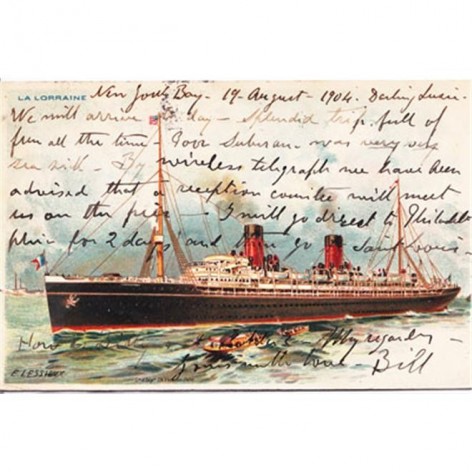 LA LORRAINE New York Bay - 19 - August - 1904. Darling Susie.
We will arrive to day - Splendid trip. full of
fun all the time - Poor Suberan - was very very
sea sick - By wireless telegraph we have been
advised that a reception comitee will meet
us on the pier - I will go direct to Philadel
phia for 2 days and then go Saint Louis -
How My regards -
Yours with love - Bill
E. LESSIEUX